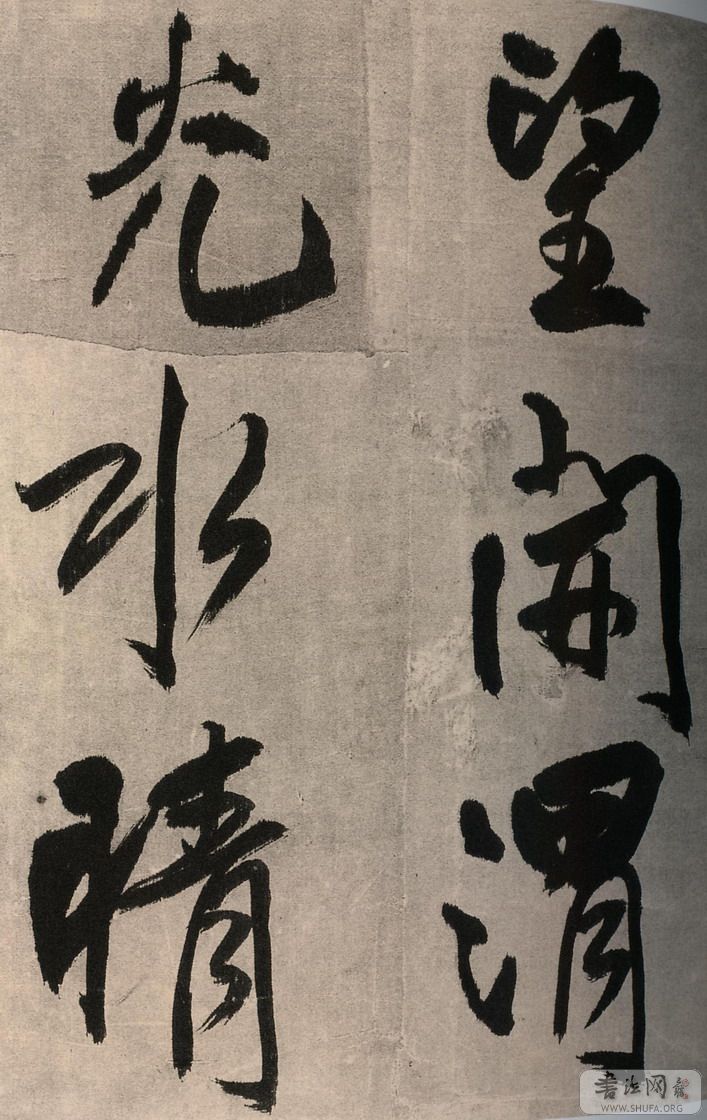 望開渭
光水晴
書法网
WWW.SHUFA.ORG